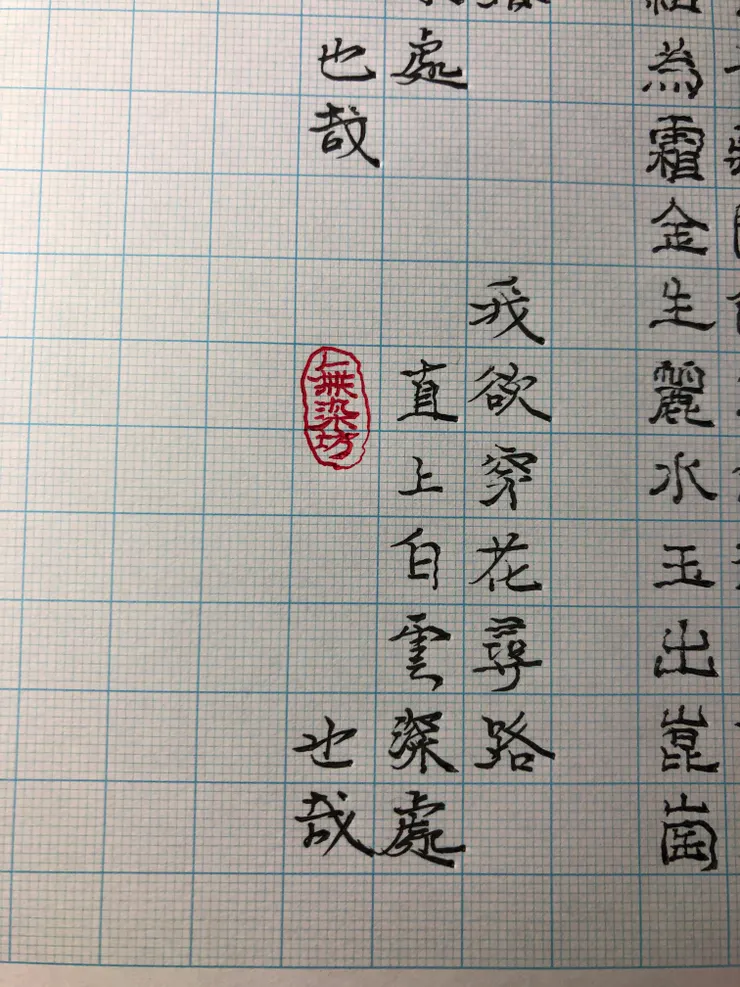 為霜金生麗水玉出崑崗
我欲穿花尋路
處
直上白雲深處
也哉
無染坊
也哉